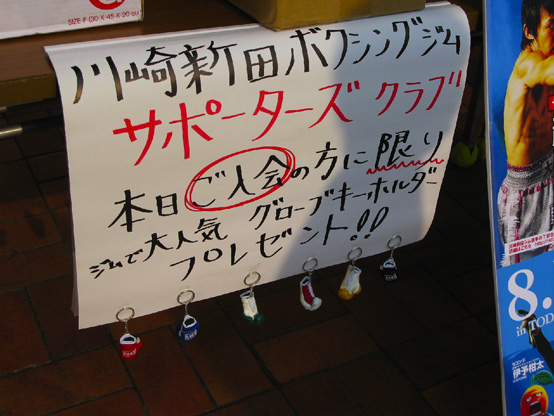 SIZE F (30 X 45 X 20 cm)
川崎新田ボクシングジム
サポーターズ クラブ
本日ご入会の方に限り
ジムで大人気 グローブキーホルダー
プレゼント!!
8.
in TOD
伊予柑太